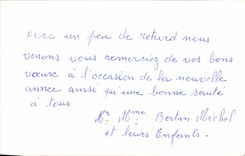 Avec un peu de retard nous
venons vous remerciez de vos bons
vœux à l'occasion de la nouvelle
année ainsi qu'une bonne santé
à tous
Mr. Mme Bertin Michel
et leurs Enfants.